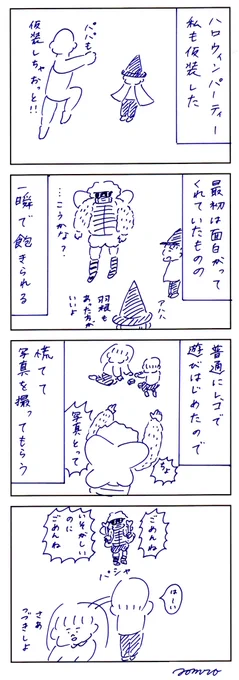 ハロウィンパーティー
私も仮装した
パパも
仮装しちゃおっと!!
最初は面白がって
くれていたものの
…こうかな?
アハハ
羽根も
あった方が
いいよ
一瞬で飽きられる
普通にレゴで
遊びはじめたので
ちょっ
写真とって
慌てて
写真を撮ってもらう
ごめんね
いそがしい
のに
ごめんね
パシャ
はーい
さあ
つづきしよ